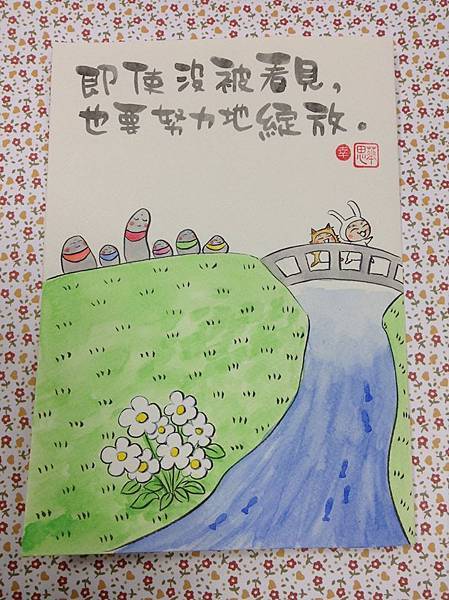 即使沒被看見，
也要努力地綻放。
幸